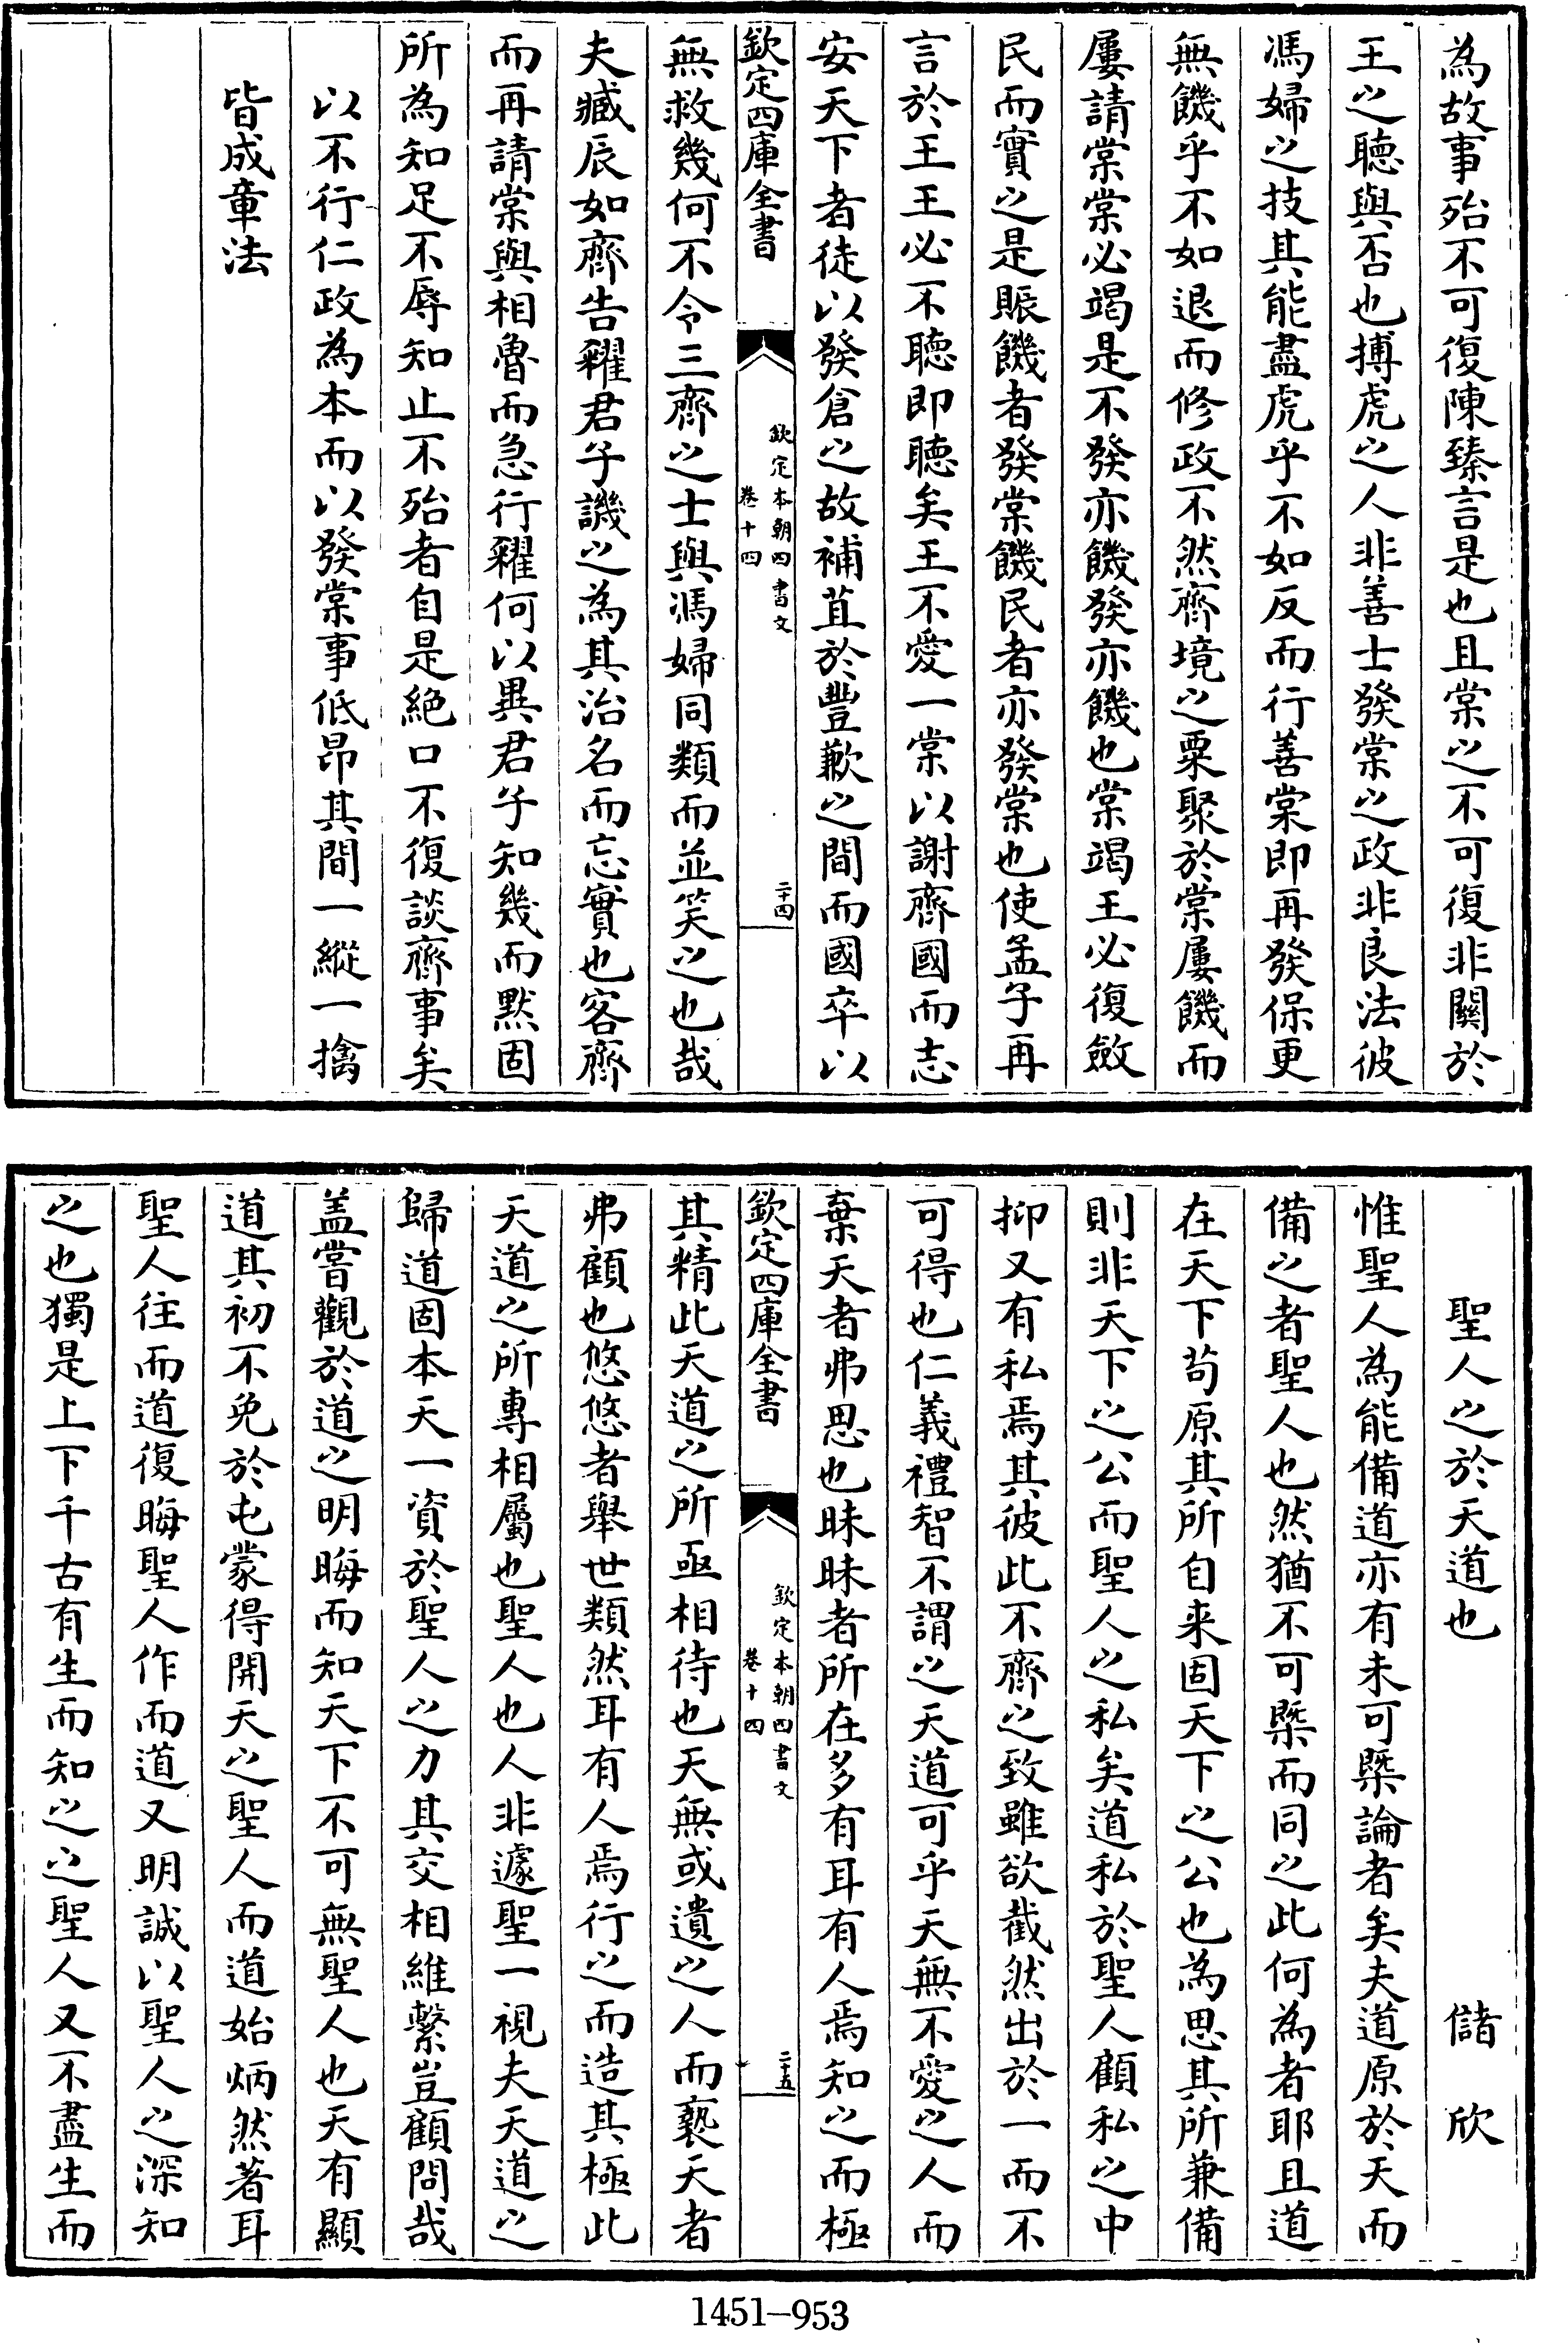 為故事殆不可復陳臻言是也且棠之不可復非關於
王之聽與否也搏虎之人非善士發棠之政非良法彼
馮婦之技其能盡虎乎不如反而行善棠即再發保更
無饑乎不如退而修政不然齊境之粟聚於棠屢饑而
屢請棠棠必竭是不發亦饑發亦饑也棠竭王必復斂
民而實之是賑饑者發棠饑民者亦發棠也使孟子再
言於王王必不聽即聽矣王不愛一棠以謝齊國而志
安天下者徒以發倉之故補苴於豐歉之間而國卒以
欽定四庫全書
欽定本朝四書文
卷十四
二十四
無救幾何不令三齊之士與馮婦同類而並笑之也哉
夫臧辰如齊告糴君子譏之為其治名而忘實也客齊
而再請棠與相魯而急行糴何以異君子知幾而默固
所為知足不辱知止不殆者自是絕口不復談齊事矣
以不行仁政為本而以發棠事低昂其間一縱一擒
皆成章法
聖人之於天道也 儲欣
惟聖人為能備道亦有未可槩論者矣夫道原於天而
備之者聖人也然猶不可槩而同之此何為者耶且道
在天下苟原其所自来固天下之公也為思其所兼備
則非天下之公而聖人之私矣道私於聖人顧私之中
抑又有私焉其彼此不齊之致雖欲截然出於一而不
可得也仁義禮智不謂之天道可乎天無不愛之人而
棄天者弗思也昧昧者所在多有耳有人焉知之而極
欽定四庫全書
欽定本朝四書文
卷十四
二十五
其精此天道之所亟相待也天無或遺之人而褻天者
弗顧也悠悠者舉世類然耳有人焉行之而造其極此
天道之所專相屬也聖人也人非遽聖一視夫天道之
歸道固本天一資於聖人之力其交相維繫豈顧問哉
盖嘗觀於道之明晦而知天下不可無聖人也天有顯
道其初不免於屯蒙得開天之聖人而道始炳然著耳
聖人往而道復晦聖人作而道又明誠以聖人之深知
之也獨是上下千古有生而知之之聖人又不盡生而
1451-953